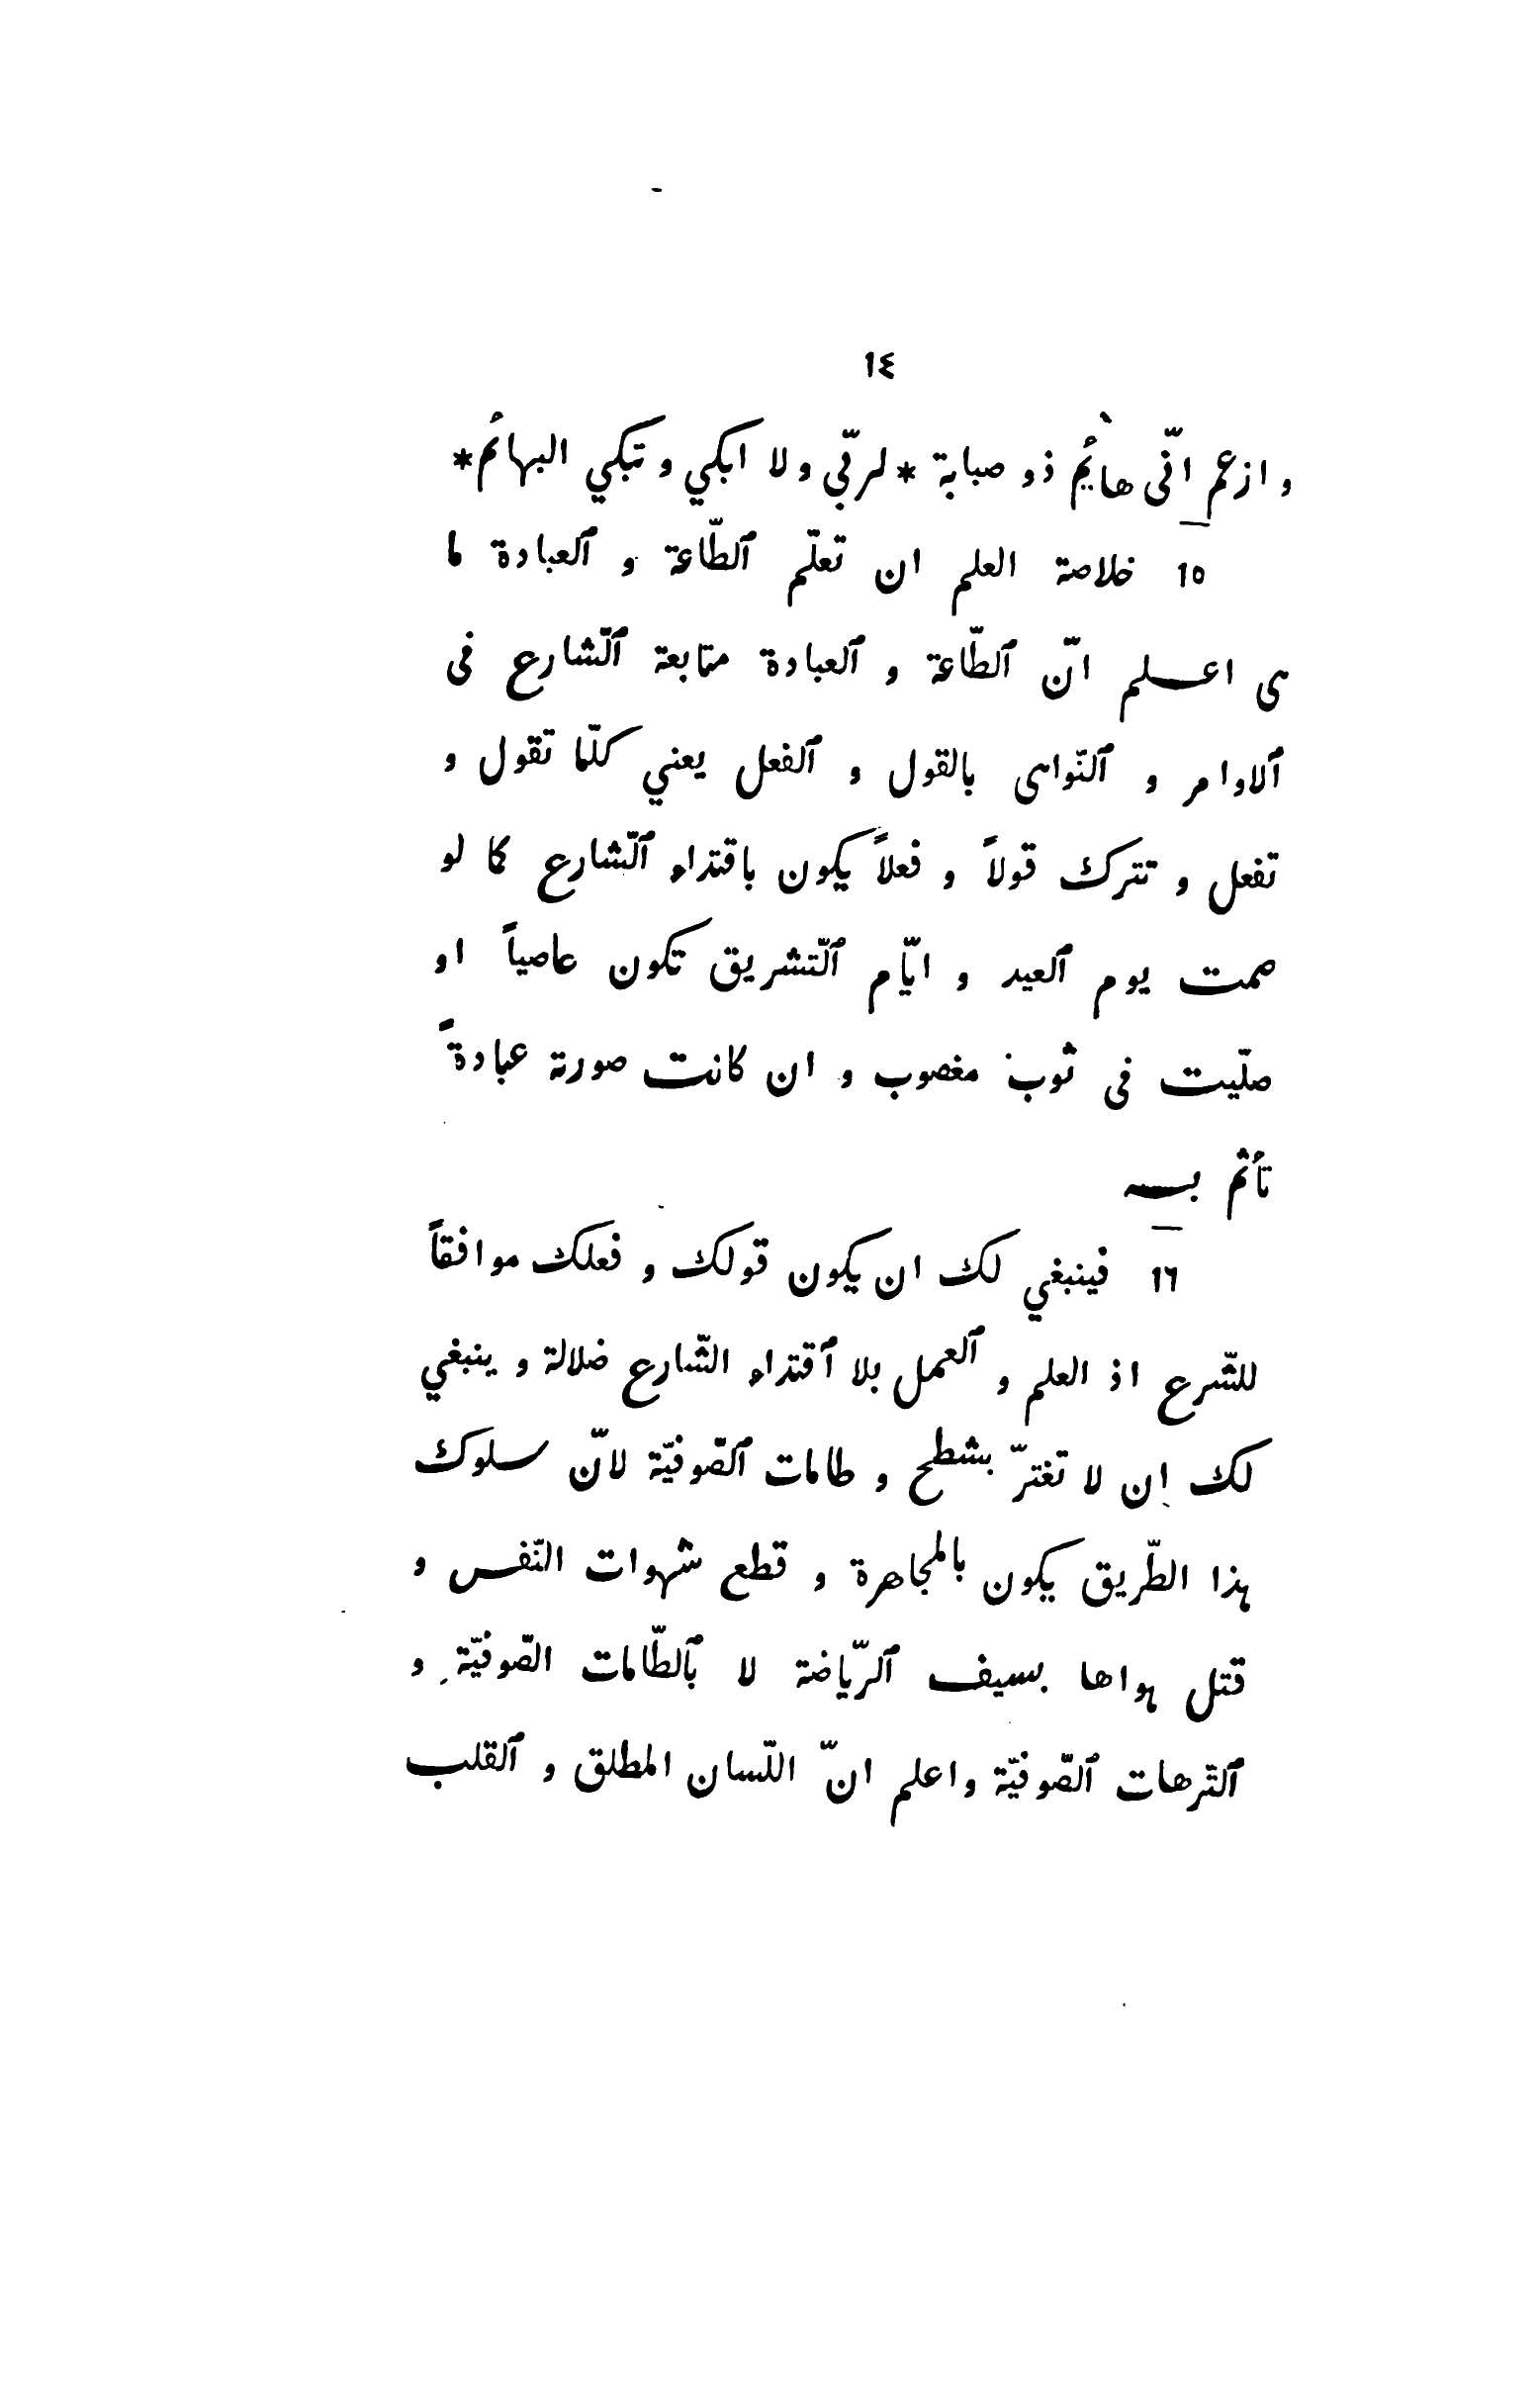 ١٤
و ازعم انّى هائم ذو صبابة * لربّى ولا ابكي و تبكي البهائم *
١٥ خلاصة العلم ان تعلّم ٱلطّاعة و ٱلعبادة ما
هى اعلم انّ ٱلطّاعة و ٱلعبادة متابعة ٱلشّارع فى
ٱلاوامر و ٱلنّواهى بالقول و ٱلفعل يعني كلّما تقول و
تفعل و تترك قولاً و فعلاً يكون باقتداء ٱلشّارع كما لو
صمت يوم ٱلعيد و ايّام ٱلتّشريق تكون عاصياً او
صلّيت فى ثوب مغصوب و ان كانت صورة عبادةً
تأثم به
١٦ فينبغي لك ان يكون قولك و فعلك موافقاً
للشّرع اذ العلم و ٱلعمل بلا ٱقتداء الشّارع ضلالة و ينبغي
لك ان لا تغترّ بشطح و طامات ٱلصّوفيّة لانّ سلوك
هذا الطّريق يكون بالمجاهرة و قطع شهوات النّفس و
قتل هواها بسيف ٱلرّياضة لا بٱلطّامات الصّوفيّة و
ٱلتّرهات ٱلصّوفيّة واعلم انّ اللّسان المطلق و ٱلقلب